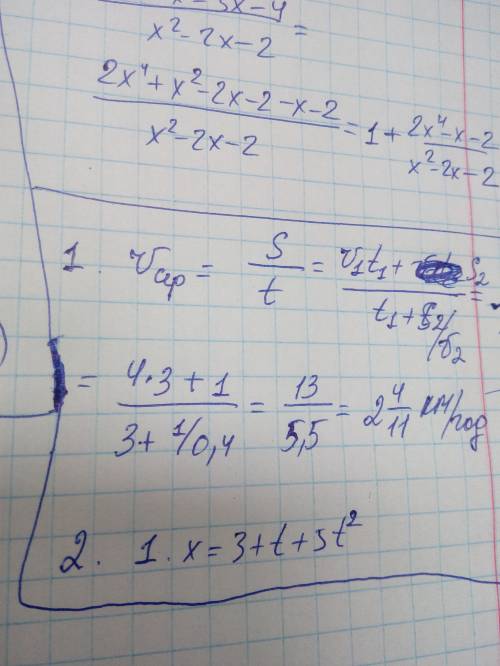 x²-2x-2 =
2x⁴+x²-2x-2-x-2 / x²-2x-2 = 1 + 2x⁴-x-2 / x²-2x-2
1. Vср = S / t = V₁t₁ + S₂ / t₁ + S₂/V₂ =
= 4·3+1 / 3+1/0,4 = 13 / 5,5 = 2 4/11 км/год
2. 1. x = 3+t+5t²